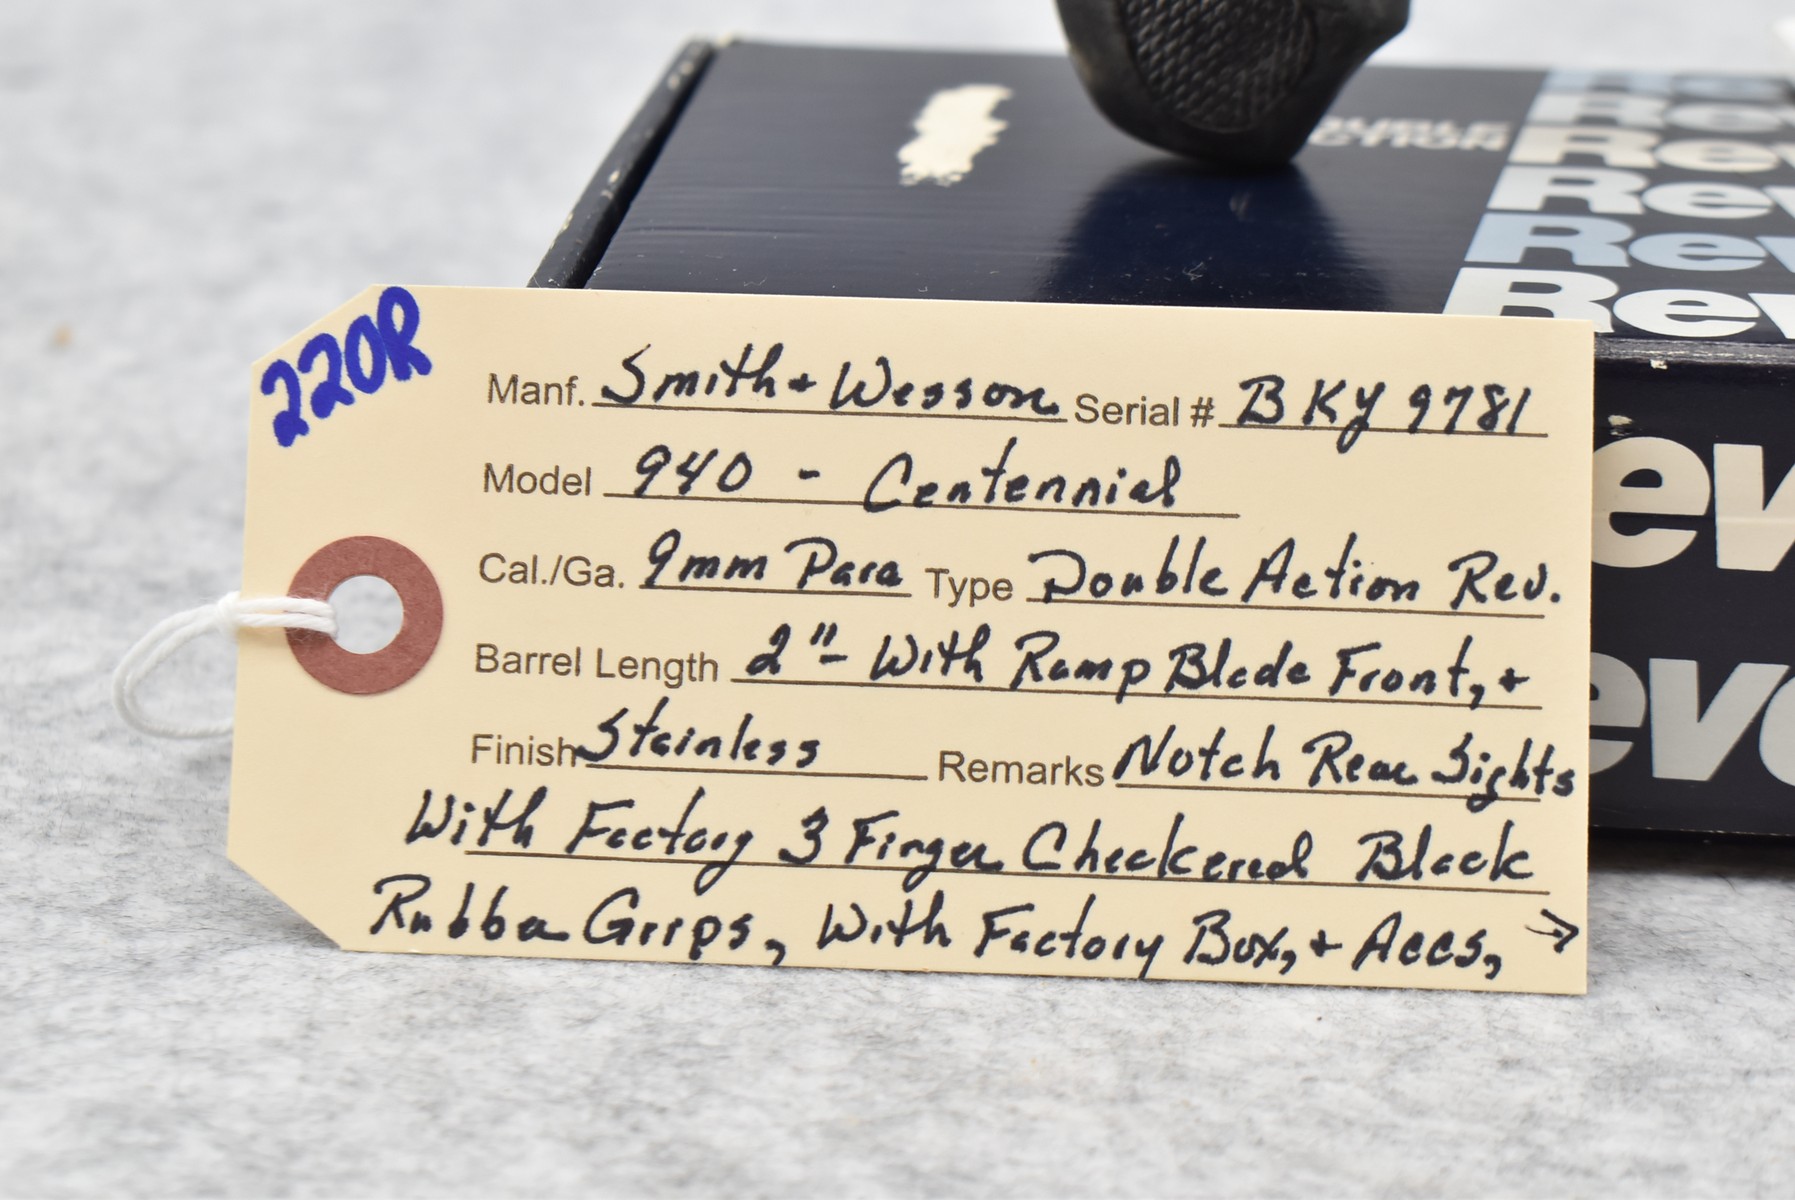 220R
Manf. Smith + Wesson Serial # BKY 9781
Model 940 - Centennial
Cal./Ga. 9mm Para Type Double Action Rev.
Barrel Length 2"- With Ramp Blade Front, +
Finish Stainless Remarks Notch Rear Sights
With Factory 3 Finger Checkered Black
Rubber Grips, With Factory Box, + Accs, →
Rev
Rev
Rev
Rev
Rev
ev
eve